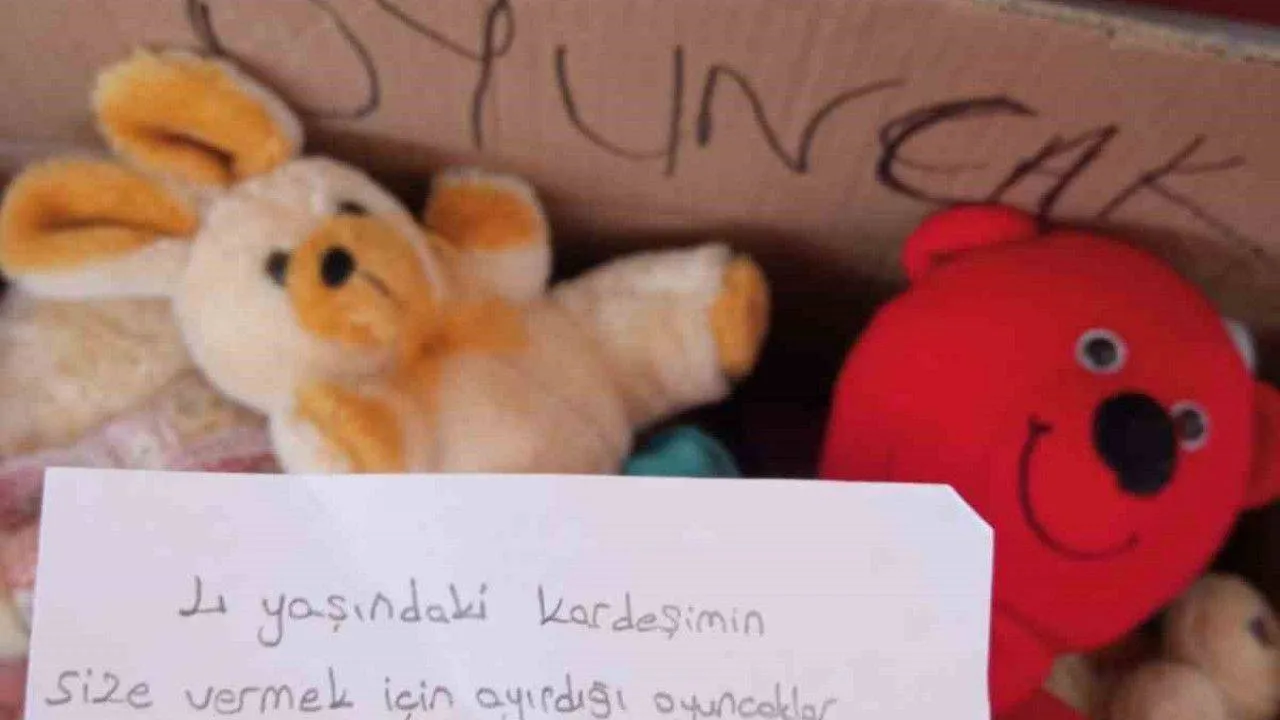 OYUNCAK
4 yaşındaki kardeşimin
size vermek için ayırdığı oyuncaklar